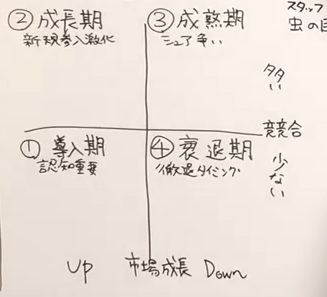 ② 成長期
新規参入激化
③ 成熟期
シェア争い
スタッフ
虫の目
多い
競合
少ない
① 導入期
認知重要
④ 衰退期
撤退タイミング
Up 市場成長 Down